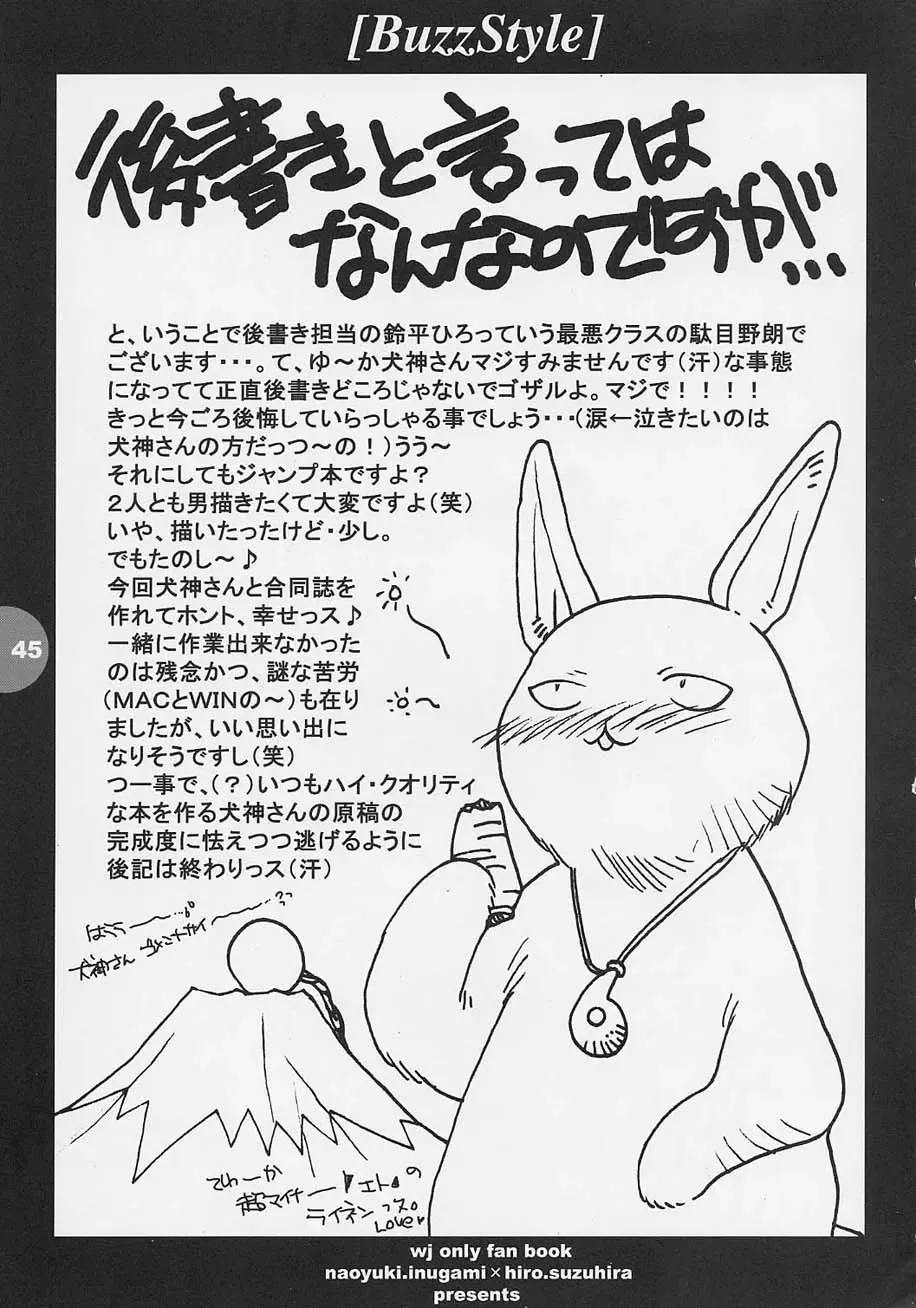 [BuzzStyle]
後書きと言っては
なんなのですが…
と、いうことで後書き担当の鈴平ひろっていう最悪クラスの駄目野朗で
ございます・・・。て、ゆ～か犬神さんマジすみませんです（汗）な事態
になってて正直後書きどころじゃないでゴザルよ。マジで！！！！
きっと今ごろ後悔していらっしゃる事でしょう・・・（涙←泣きたいのは
犬神さんの方だっつ～の！）うう～
それにしてもジャンプ本ですよ？
２人とも男描きたくて大変ですよ（笑）
いや、描いたったけど・少し。
でもたのし～♪
今回犬神さんと合同誌を
作れてホント、幸せっス♪
一緒に作業出来なかった
のは残念かつ、謎な苦労
（MACとWINの～）も在り
ましたが、いい思い出に
なりそうですし（笑）
つー事で、（？）いつもハイ・クオリティ
な本を作る犬神さんの原稿の
完成度に怯えつつ逃げるように
後記は終わりっス（汗）
45
犬神さん ゴメンナサイ～～～??
てゆーか
超マイナー「エト」の
ライネンっス。
Love♥
wj only fan book
naoyuki.inugami×hiro.suzuhira
presents